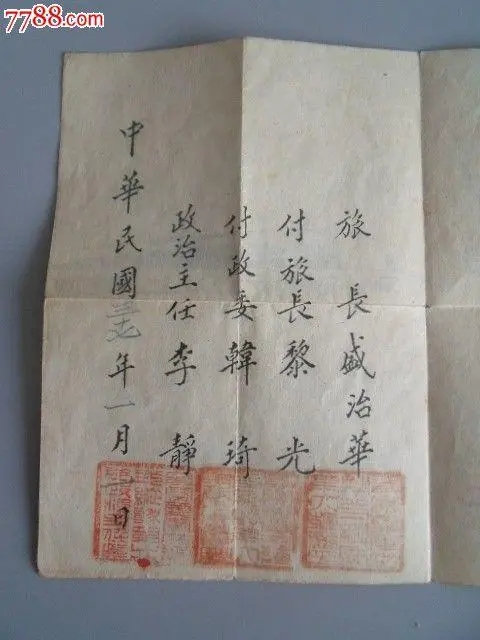 7788.com
旅長盛治華
付旅長黎光
付政委韓琦
政治主任李靜
中華民國卅七年一月一日